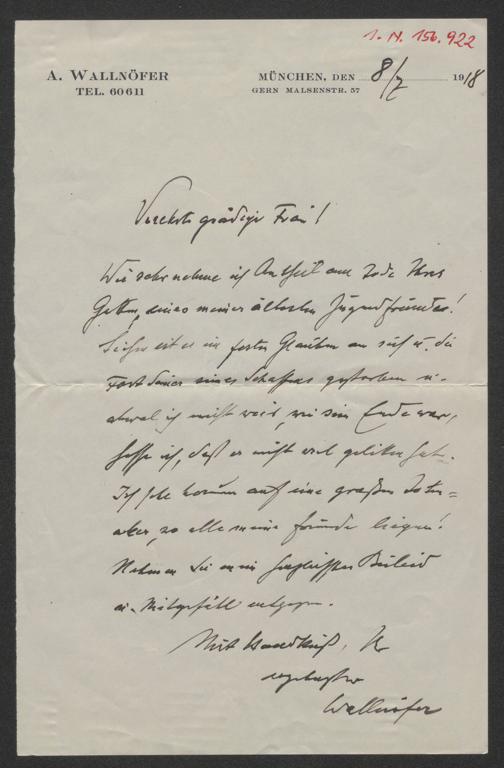 1. N. 156.922
A. WALLNÖFER
TEL. 60611
MÜNCHEN, DEN 8/7 1918
GERN MALSENSTR. 57
Verehrte gnädige Frau!
Wie sehr nehme ich Antheil am Tode Ihres
Gatten, eines meiner ältesten Jugendfreunde!
Sicher ist er im festen Glauben an sich u. die
seines Schaffens gestorben u.
obwol ich nicht weis, wie sein Ende war,
hoffe ich, daß er nicht viel gelitten hat.
Ich sehe herum auf eine großen Toten=
acker, wo alle meine Freunde liegen!
Nehmen Sie mein herzlichstes Beileid
u. Mitgefühl entgegen.
Mit Handkuß, Ihr
ergebenster
Wallnöfer